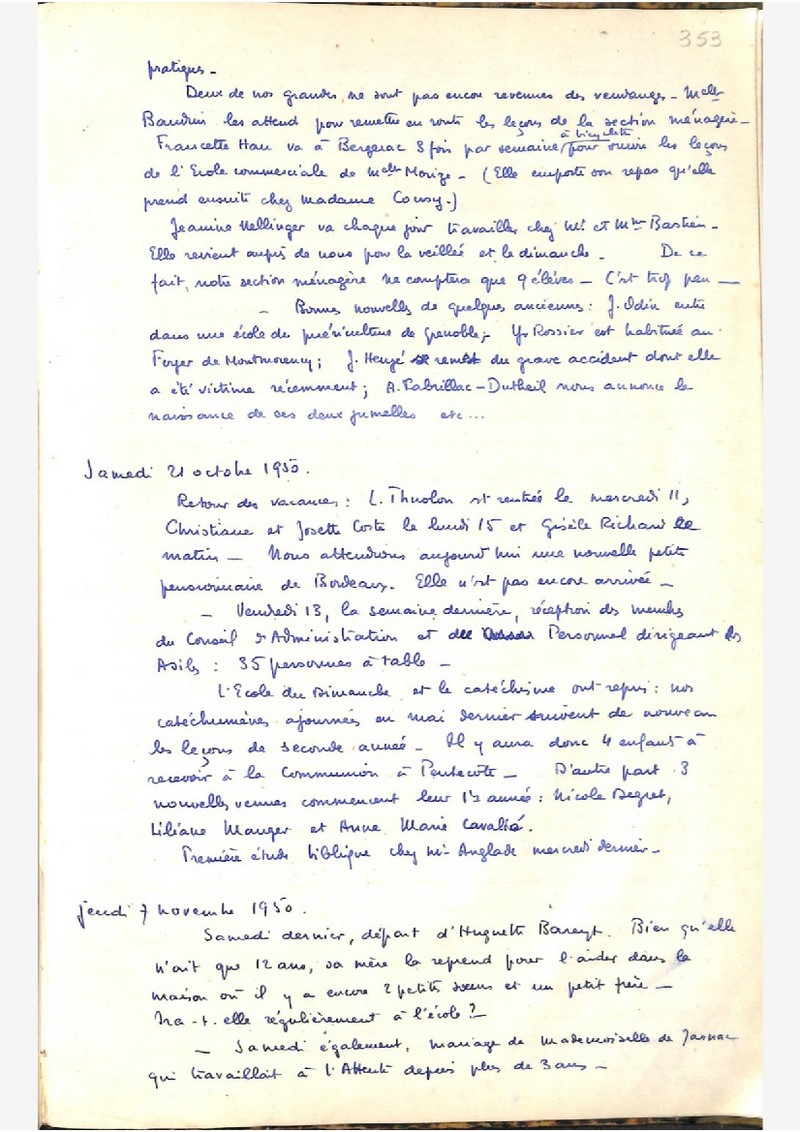 353
pratiques -
Deux de nos grandes ne sont pas encore revenues des vendanges - Melle
Baudrin les attend pour remettre en route les leçons de la section ménagère -
à bicyclette
Francette Hau va à Bergerac 3 fois par semaine / pour suivre les leçons
de l'Ecole commerciale de Melle Morize - (Elle emporte son repas qu'elle
prend ensuite chez Madame Cousy.)
Jeanine Hellinger va chaque jour travailler chez Mr et Mme Bastien -
Elle revient auprès de nous pour la veillée et le dimanche - De ce
fait, notre section ménagère ne comptera que 9 élèves - C'est trop peu -
- Bonnes nouvelles de quelques anciennes : J. Odin entre
dans une école de puériculture de Grenoble ; Y. Rossier est habituée au
Foyer de Montmorency ; J. Hergé se remet du grave accident dont elle
a été victime récemment ; A. Fabrillac - Dutheil nous annonce la
naissance de ses deux jumelles etc...
Samedi 21 octobre 1950.
Retour des vacances : L. Thuolon est rentrée le mercredi 11,
Christiane et Josette Coste le lundi 15 et Gisèle Richard le
matin - Nous attendions aujourd'hui une nouvelle petite
pensionnaire de Bordeaux. Elle n'est pas encore arrivée -
- Vendredi 13, la semaine dernière, réception des membres
du Conseil d'Administration et du Personnel dirigeant des
Asiles : 35 personnes à table -
L'Ecole du Dimanche et le catéchisme ont repris : nos
catéchumènes ajournées en mai dernier suivent de nouveau
les leçons de seconde année - Il y aura donc 4 enfants à
recevoir à la Communion à Pentecôte - D'autre part 3
nouvelles venues commencent leur 1re année : Nicole Degret,
Liliane Manger et Anne Marie Cavalié.
Première étude biblique chez Mr Anglade mercredi dernier -
Jeudi 7 novembre 1950.
Samedi dernier, départ d'Huguette Bareyt. Bien qu'elle
n'ait que 12 ans, sa mère la reprend pour l'aider dans la
maison où il y a encore 2 petites soeurs et un petit frère -
Ira-t-elle régulièrement à l'école ? -
- Samedi également, mariage de Mademoiselle de Jarnac
qui travaillait à l'Attente depuis plus de 3 ans -